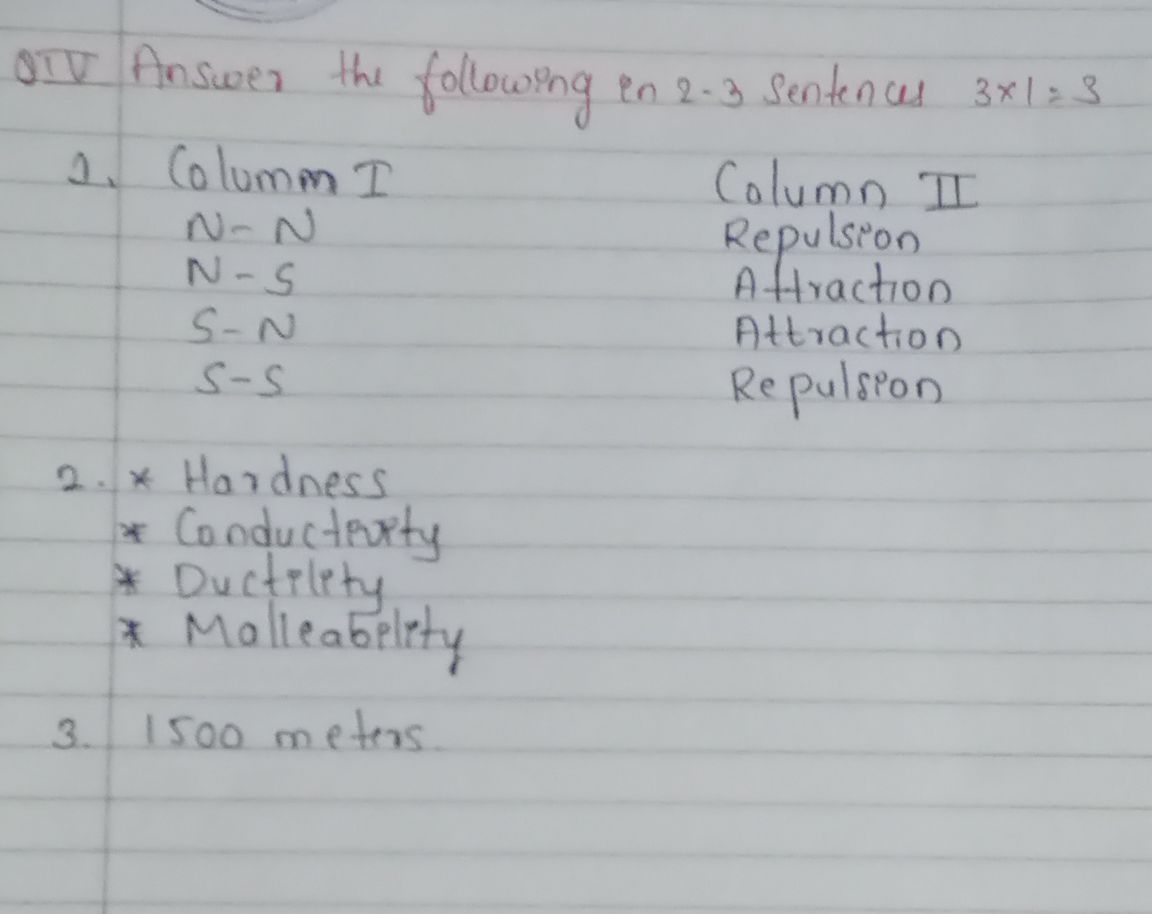 QIV Answer the following in 2-3 Sentences 3x1=3
1. Column I Column II
N-N Repulsion
N-S Attraction
S-N Attraction
S-S Repulsion
2. * Hardness
* Conductivity
* Ductility
* Malleability
3. 1500 meters.